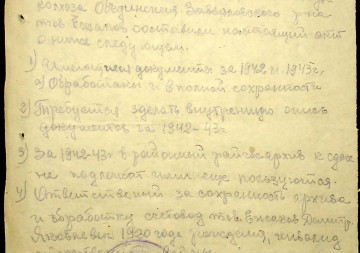 колхоза Объединения Заваловского з-на
тов Елизаров составили настоящий акт
о ниже следующем.
1) Имеющиеся документы за 1942 и 1943г.
а) Обработаны и в полной сохранности
2) Требуется зделать внутреннию опись
документов за 1942-43г
3) За 1942-43г в районный райгосархив к сдаче
не подлежат или еще пользуются.
4) Ответственный за сохранность архива
и обработку счетовод тов Дмитр.
Яковлевич 1930 года рождения, инвалид